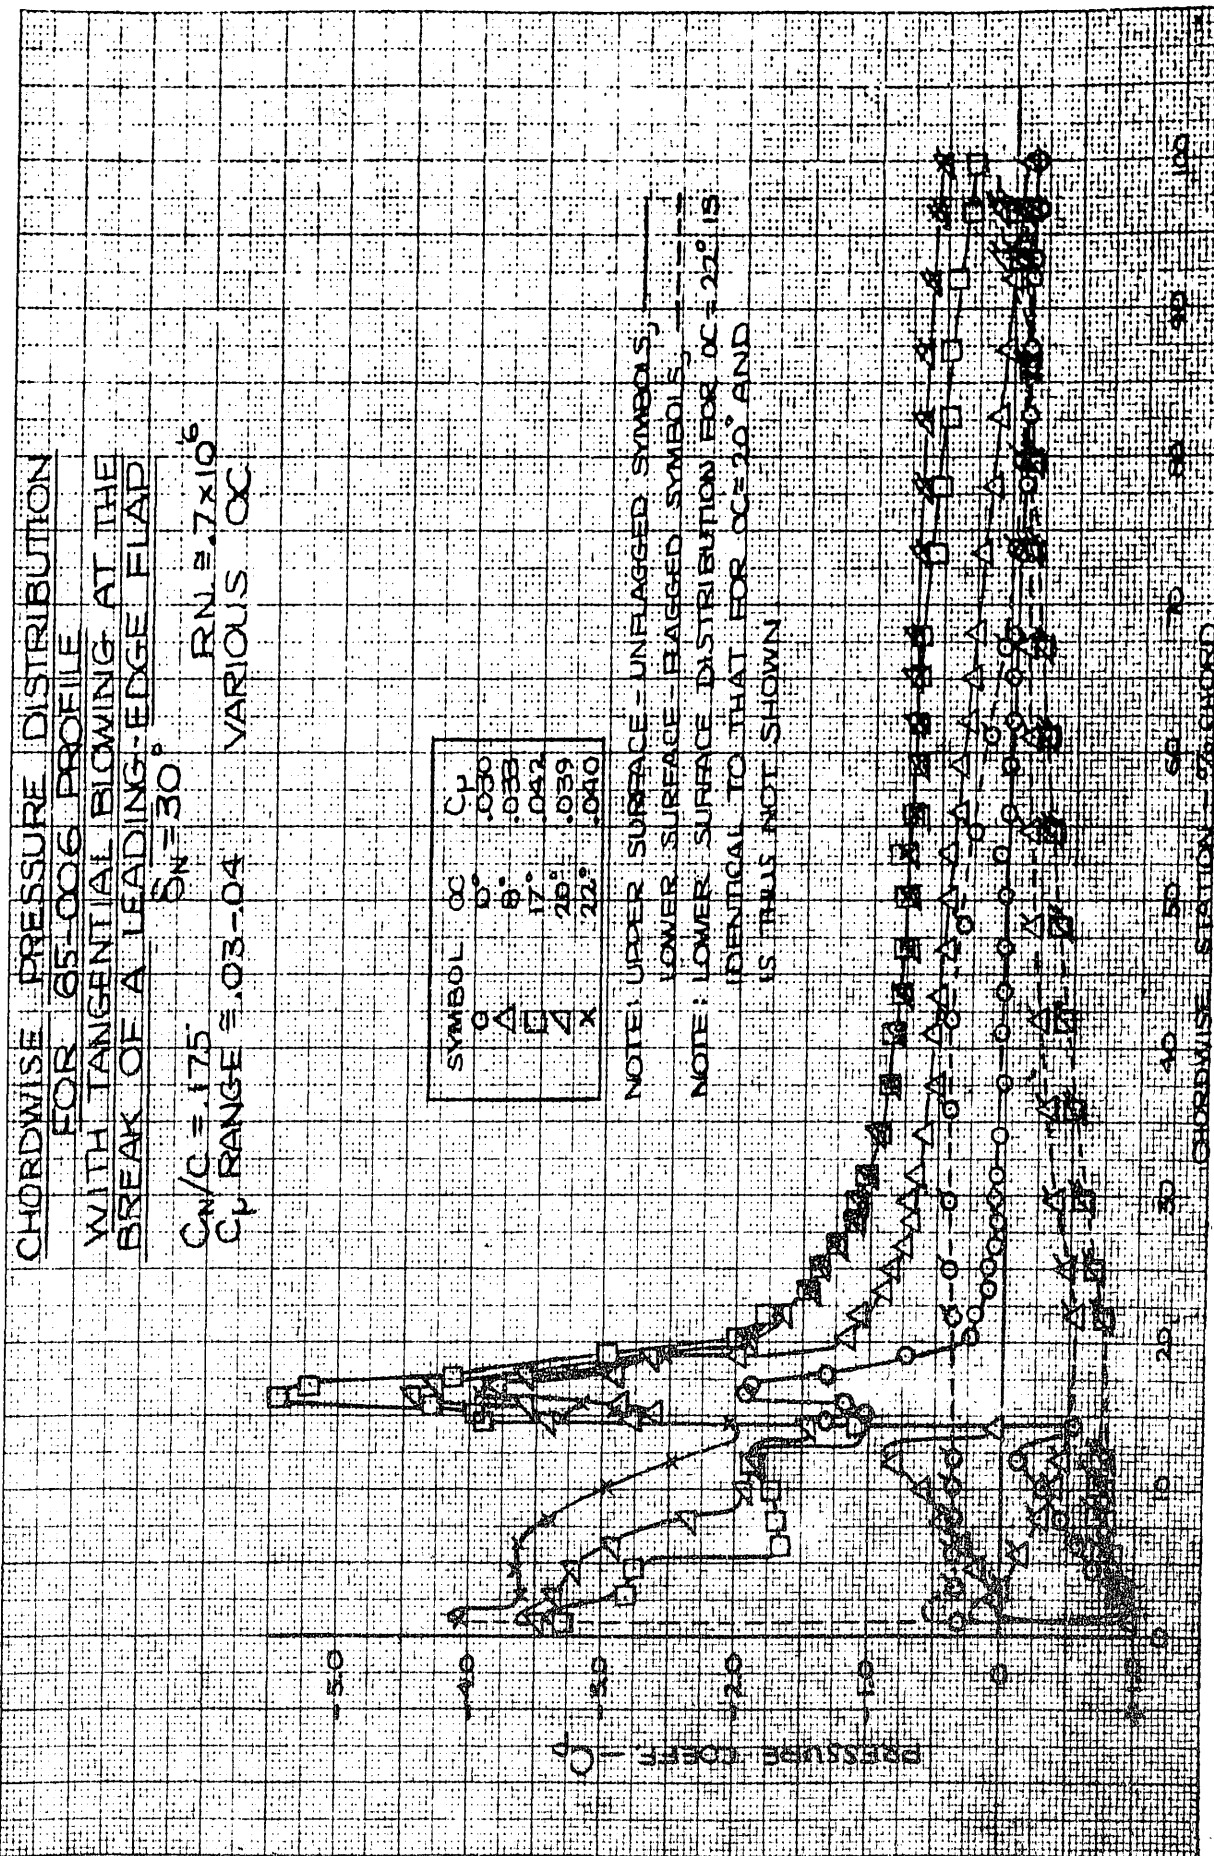 CHORDWISE PRESSURE DISTRIBUTION
FOR 65-006 PROFILE
WITH TANGENTIAL BLOWING AT THE
BREAK OF A LEADING-EDGE FLAP
δN = 30°
CN/C = .175 RN. ≅ .7x10⁶
Cμ RANGE ≅ .03-.04 VARIOUS α
SYMBOL α Cμ
○ 0° .030
△ 8° .033
□ 17° .042
◿ 20° .039
x 22° .040
NOTE: UPPER SURFACE - UNFLAGGED SYMBOLS,
LOWER SURFACE - FLAGGED SYMBOLS,
NOTE: LOWER SURFACE DISTRIBUTION FOR α = 22° IS
IDENTICAL TO THAT FOR α = 20° AND
IS THUS NOT SHOWN
PRESSURE COEFF. - Cp
-5.0
-4.0
-3.0
-2.0
-1.0
0
+1.0
0 10 20 30 40 50 60 70 80 90 100
CHORDWISE STATION - % CHORD